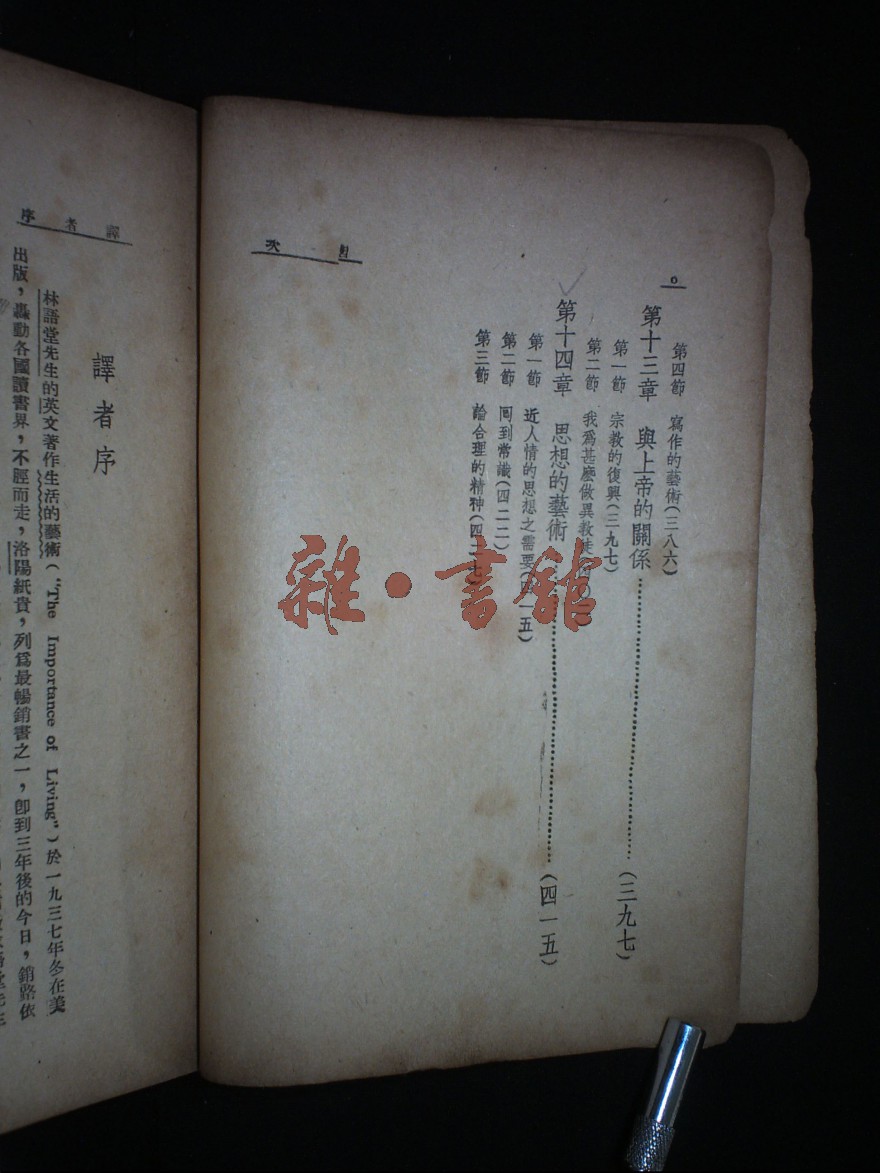 六
目次
第四節 寫作的藝術(三八六)
第十三章 與上帝的關係……(三九七)
第一節 宗教的復興(三九七)
第二節 我爲甚麽做異教徒
第十四章 思想的藝術……(四一五)
第一節 近人情的思想之需要(四一五)
第二節 囘到常識(四二二)
第三節 論合理的精神(四二七)
譯者序
譯者序
林語堂先生的英文著作生活的藝術(“The Importance of Living”)於一九三七年冬在美
出版,轟動各國讀書界,不脛而走,洛陽紙貴,列爲最暢銷書之一,卽到三年後的今日,銷路依
雜·書館